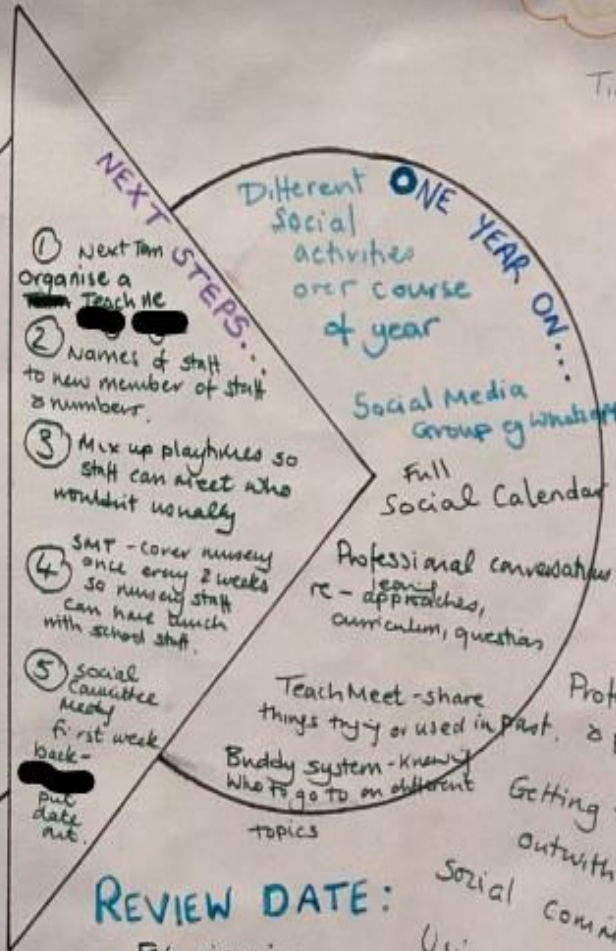 NEXT STEPS...
① Next Term
Organise a
Teach Me
② Names of staff
to new member of staff
& numbers.
③ Mix up playtimes so
staff can meet who
wouldn't usually
④ SMT - cover nursery
once every 2 weeks
so nursery staff
can have lunch
with school staff.
⑤ Social
Committee
Meeting
first week
back -
put
date
out.
ONE YEAR ON...
Different
social
activities
over course
of year
Social Media
Group eg Whatsapp
Full
Social Calendar
Professional conversations
re - learning
approaches,
curriculum, questions
TeachMeet - share
things trying or used in past.
Buddy system - knowing
who to go to on different
topics
REVIEW DATE:
Getting
outwith
Social comm